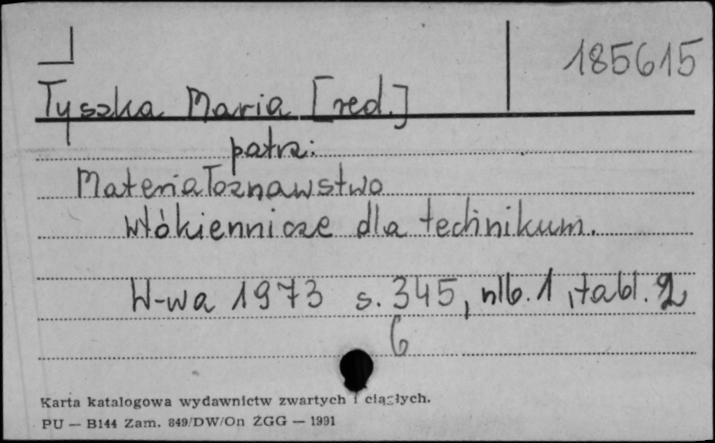 185615
Tyszka Maria [red.]
patrz:
Materiałoznawstwo
włókiennicze dla technikum.
W-wa 1973 s. 345, nlb. 1, tabl. 2
6
Karta katalogowa wydawnictw zwartych i ciągłych.
PU — B144 Zam. 849/DW/On ŻGG — 1991